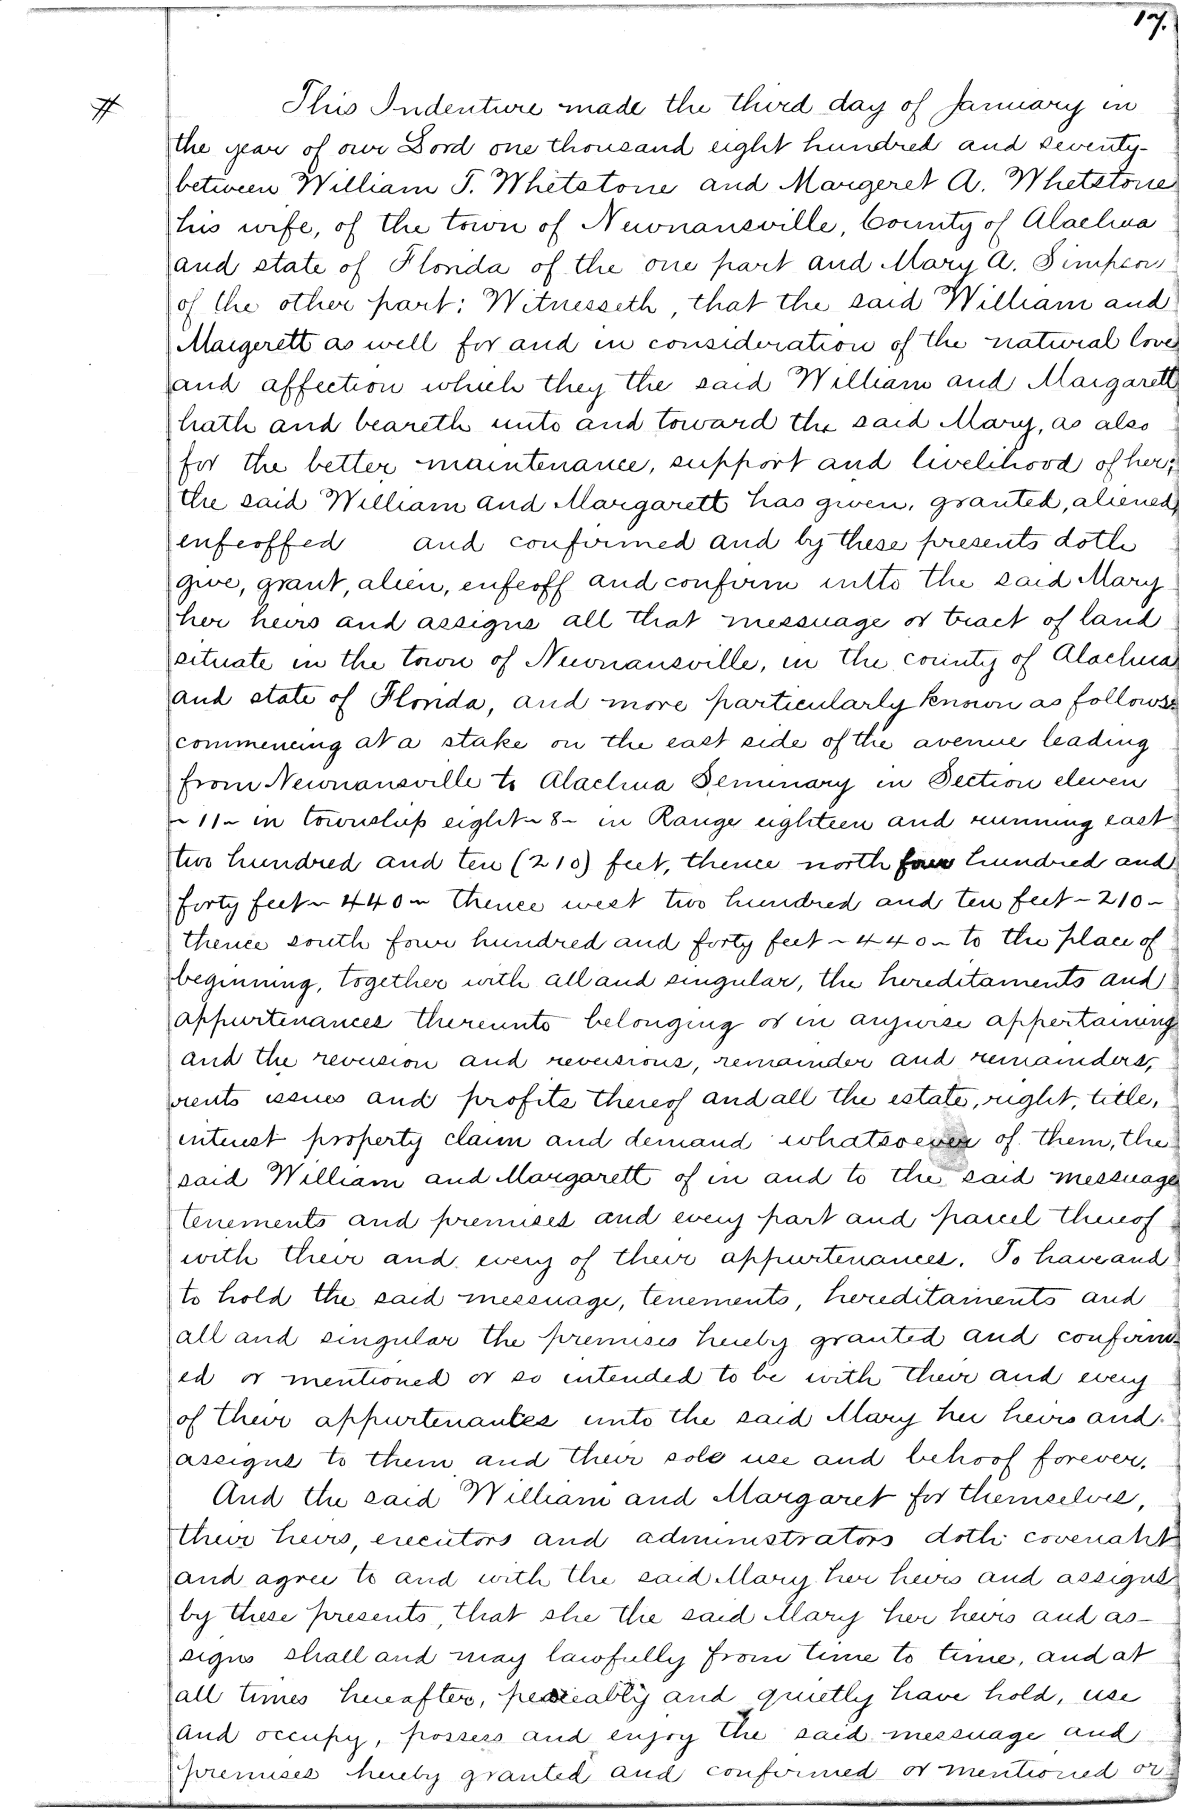 17.
#
This Indenture made the third day of January in
the year of our Lord one thousand eight hundred and seventy-
between William T. Whetstone and Margeret A. Whetstone
his wife, of the town of Newnansville, County of Alachua
and state of Florida of the one part and Mary A. Simpson
of the other part: Witnesseth, that the said William and
Margerett as well for and in consideration of the natural love
and affection which they the said William and Margarett
hath and beareth unto and toward the said Mary, as also
for the better maintenance, support and livelihood of her;
the said William and Margarett has given, granted, aliened,
enfeoffed and confirmed and by these presents doth
give, grant, alien, enfeoff and confirm unto the said Mary
her heirs and assigns all that messuage or tract of land
situate in the town of Newnansville, in the county of Alachua
and state of Florida, and more particularly known as follows:
commencing at a stake on the east side of the avenue leading
from Newnansville to Alachua Seminary in Section eleven
~ 11 ~ in township eight ~ 8 ~ in Range eighteen and running east
two hundred and ten (210) feet, thence north four hundred and
forty feet ~ 440 ~ thence west two hundred and ten feet ~ 210 ~
thence south four hundred and forty feet ~ 440 ~ to the place of
beginning, together with all and singular, the hereditaments and
appurtenances thereunto belonging or in anywise appertaining
and the revesion and revesions, remainder and remainders,
rents issues and profits thereof and all the estate, right, title,
interest property claim and demand whatsoever of them, the
said William and Margarett of in and to the said messuage
tenements and premises and every part and parcel thereof
with their and every of their appurtenances. To have and
to hold the said messuage, tenements, hereditaments and
all and singular the premises hereby granted and confirm-
ed or mentioned or so intended to be with their and every
of their appurtenances unto the said Mary her heirs and
assigns to them and their sole use and behoof forever.
And the said William and Margaret for themselves,
their heirs, executors and administrators doth covenant
and agree to and with the said Mary her heirs and assigns
by these presents, that she the said Mary her heirs and as-
signs shall and may lawfully from time to time, and at
all times hereafter, peaceably and quietly have hold, use
and occupy, possess and enjoy the said messuage and
premises hereby granted and confirmed or mentioned or